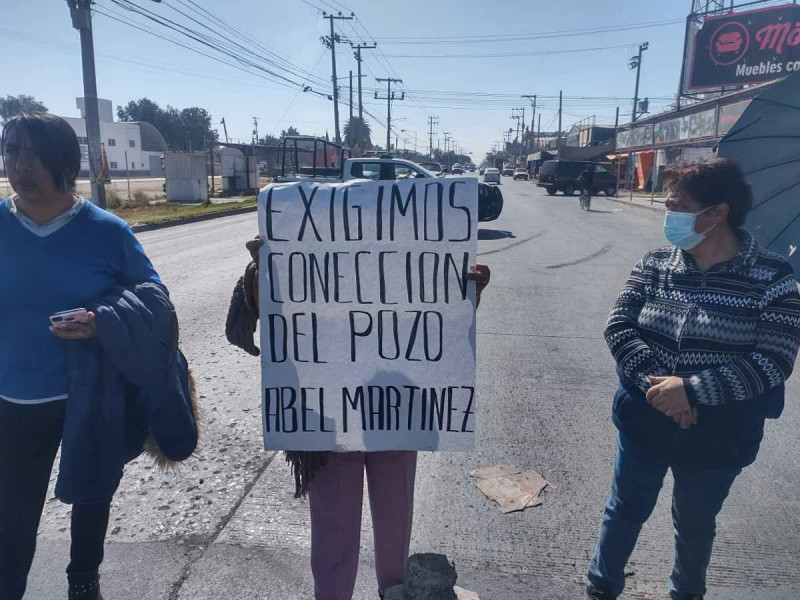 EXIGIMOS
CONECCION
DEL POZO
ABEL MARTINEZ
Muebles co